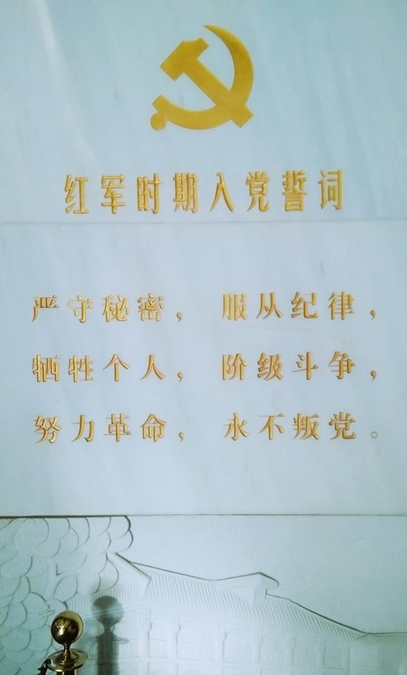 红军时期入党誓词
严守秘密， 服从纪律，
牺牲个人， 阶级斗争，
努力革命， 永不叛党。